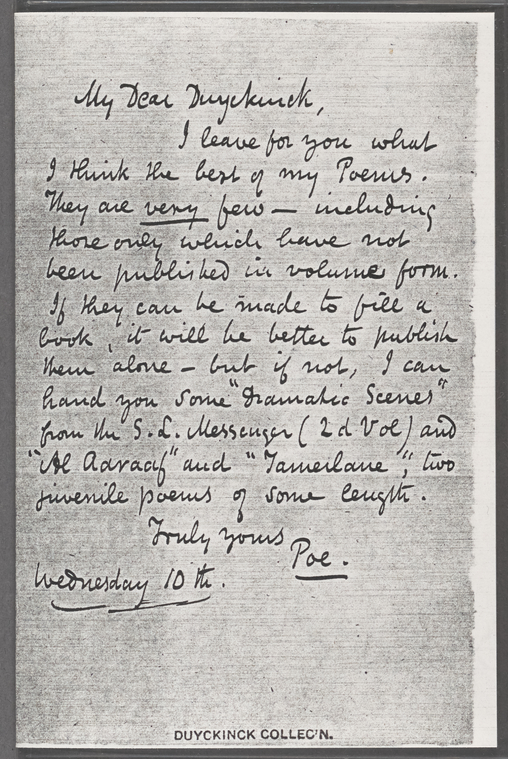 My Dear Duyckinck,
I leave for you what
I think the best of my Poems.
They are very few — including
those only which have not
been published in volume form.
If they can be made to fill a
book, it will be better to publish
them alone — but if not, I can
hand you some "Dramatic Scenes"
from the S. L. Messenger (2d Vol) and
"Al Aaraaf" and "Tamerlane", two
juvenile poems of some length.
Truly yours
Poe.
Wednesday 10th.
DUYCKINCK COLLEC'N.